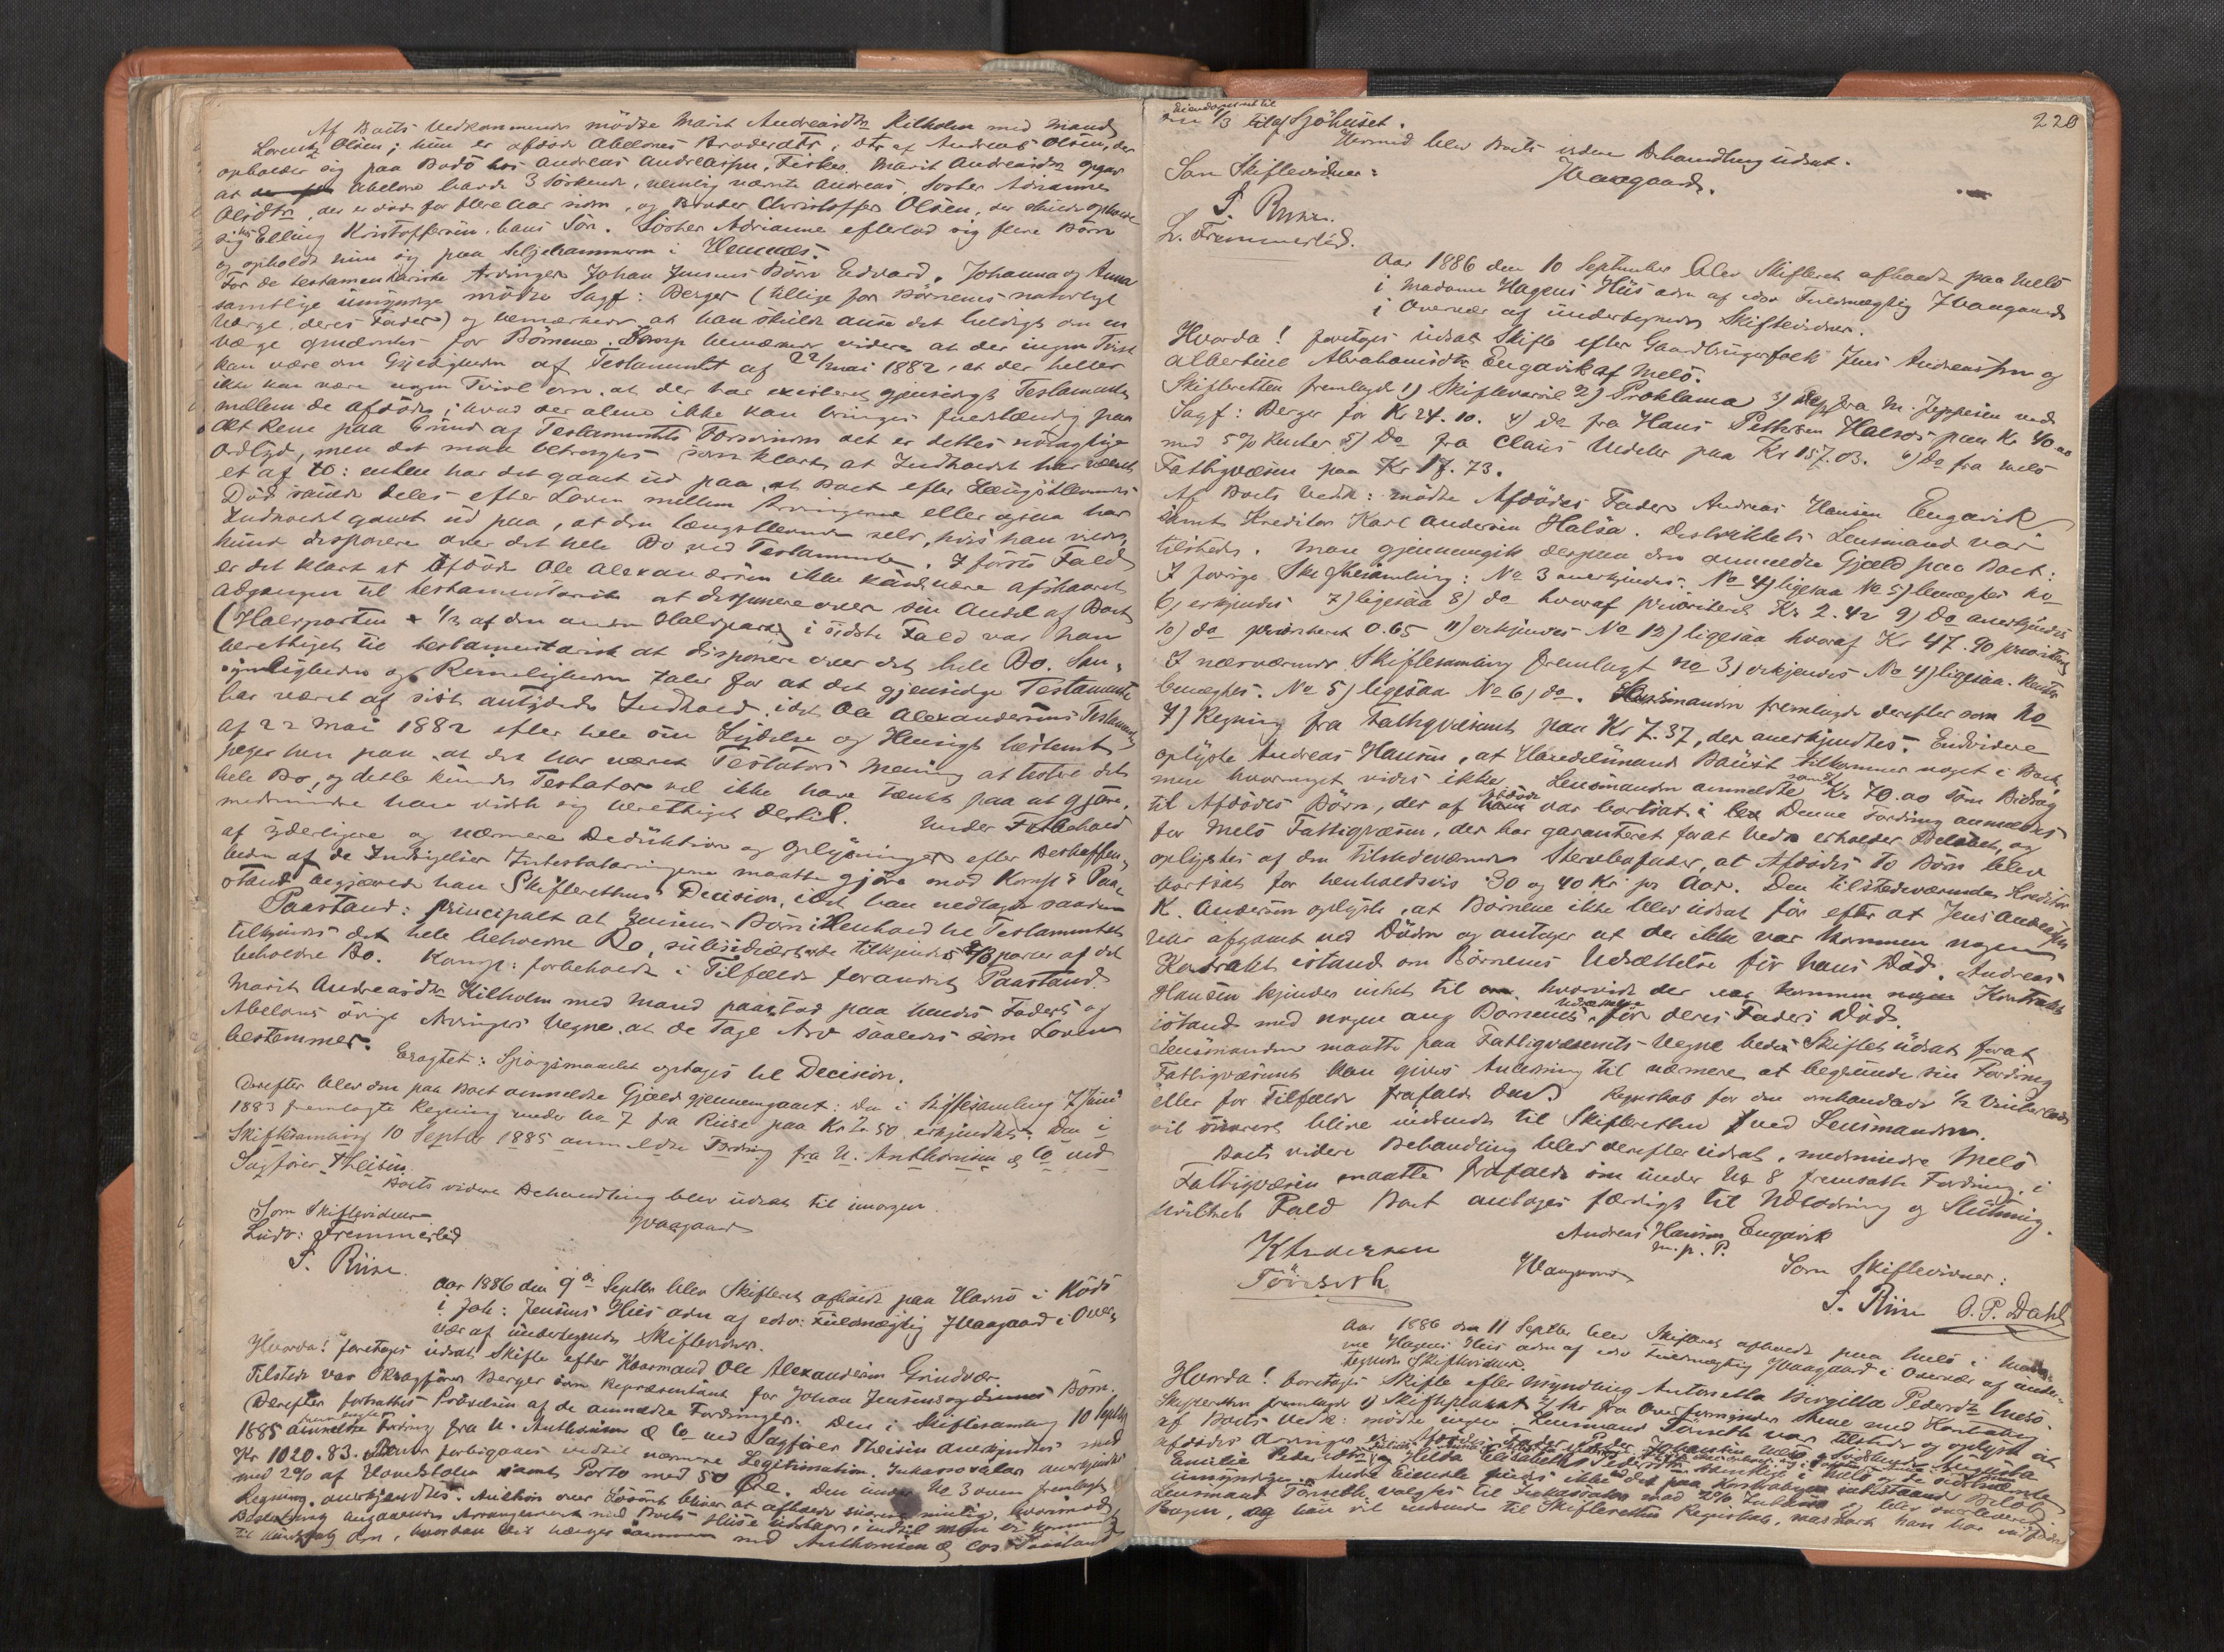 Af Boets Vedkommende mödte Marit Andreasdtr Kilholm med Mand
Lorentz Olsen; hun er afdöde Abelones Broderdtr, dtr af Andreas Olsen, der
opholder sig paa Bodö hos Andreas Andreassen, Fisker. Marit Andreasdtr opgav
at Abelone havde 3 Söskende, nemlig nævnte Andreas, Söster Adrianna
Olsdtr, der er död for flere Aar siden, og Broder Christoffer Olsen, der skulde opholde
sig hos Elling Kristoffersen, hans Sön. Söster Adrianne efterlod sig flere Börn
og opholdt hun sig paa Seljehammeren i Hemnæs.
For de testamentariske Arvinger Johan Jensens Börn Edvard, Johanna og Anna
samtlige umyndige mödte Sagf: Berger (tillige for Börnenes naturlige
Værge, deres Fader) og bemærkede at han skulde anse det heldigt om en
Værge opnævntes for Börnene. Komp bemærker videre at der ingen Tvist
kan være om Gyldigheden af Testamentet af 22/mai 1882, at der heller
ikke kan være nogen Tvivl om, at der har existeret gjensidigt Testamente
mellem de afdöde; hvad der alene ikke kan bringes fuldstændig paa
det Rene paa Grund af Testamentets Forsvinden det er dettes nöiagtige
Ordlyd, men det maa betragtes som klart at Indholdet har været
et af to: enten har det gaaet ud paa, at Boet efter Længstlevendes
Död skulde deles efter Loven mellem Arvingerne eller ogsaa har
Indholdet gaaet ud paa, at den længstlevende selv, hvis han vilde,
kunde disponere over det hele Bo ved Testamente. I förste Fald
er det klart at Afdöde Ole Alexandersen ikke kunde være afskaaret
Adgangen til testamentarisk at disponere over sin Andel af Boet
(Halvparten + 1/3 af den anden Halvpart) i sidste Fald var han
berettiget til testamentarisk at disponere over det hele Bo. San-
synligheden og Rimeligheden taler for at det gjensidige Testamente
har været af sidst antydede Indhold, idet Ole Alexandersens Testamente
af 22 Mai 1882 efter hele sin Lydelse og Hensigt bestemt
peger hen paa, at det har været Testators Mening at testere det
hele Bo, og dette kunde Testator vel ikke have tænkt paa at gjöre,
medmindre han vidste sig berettiget dertil. Under Forbehold
af yderligere og nærmere Deduktion og Oplysninger efter Beskaffen-
heden af de Indsigelser Intestatarvingerne maatte gjöre mod Komp's Paa-
stand begjærede han Skifterettens Decision, idet han nedlagde saadan
Paastand: principalt at Jensens Börn i Henhold til Testamentet
tilkjendes det hele beholdne Bo, subsidiært at de tilkjendes 2/3 parter af det
beholdne Bo. Komp: forbeholdt i Tilfælde forandret Paastand.
Marit Andreasdtr Kilholm med Mand paastod paa hendes Faders og
Abelones övrige Arvinges Vegne, at de tage Arv saaledes som Loven
bestemmer.
Eragtet: Spörgsmaalet optages til Decision.
Derefter blev den paa Boet anmeldte Gjæld gjennemgaaet: Den i Skiftesamling 7 Juni
1883 fremlagte Regning under No 7 fra Riise paa Kr 2.50 erkjendtes. Den i
Skiftesamling 10 Septbr 1885 anmeldte Fordring fra N. Anthonisen & Co ved
Sagförer Theisen
Boets videre Behandling blev udsat til imorgen.
Som Skiftevidner JVaagaard
Ludv: Fremmerlid
S. Riise.
Aar 1886 den 9de Septbr blev Skifteret afholdt paa Havnö i Rödö
i Joh: Jensens Huus adm af edsv: Fuldmægtig JVaagaard i Over-
vær af undertegnede Skiftevidner.
Hvorda! foretoges udsat Skifte efter Huusmand Ole Alexandersen Grindvær.
Tilstede var ORsagförer Berger som Repræsentant for Johan Jensens Börn.
Derefter fortsattes Prövelsen af de anmeldte Fordringer. Den i Skiftesamling 10 Septbr
1885 fremlagte Fordring fra N. Anthonisen & Co ved Sagförer Theisen anerkjendtes med
Kr 1020.83. Renter forbigaaes indtil nærmere Legitimation. Inkassosalær anerkjendtes
med 2% af Hovedstolen samt Porto med 50 Öre. Den under No 3 oven fremlagte
Regning anerkjendtes. Auktion over Lösöret bliver at afholde snarest muligt, hvorimod
Beslutning angaaende Arrangement med Boets Huse udstaaer, indtil man er kommen
til Kundskab om, hvordan det hænger sammen med Anthonisen & Cos Paastand
220
Eiendomsret til
om 1/3 del af Sjöhuset.
Hermed blev Boets videre Behandling udsat.
Som Skiftevidner: JVaagaard.
S. Riise.
L. Fremmerlid.
Aar 1886 den 10 September blev Skifteret afholdt paa Melö
i Madame Hagens Huus adm af edsv Fuldmægtig JVaagaard
i Overvær af undertegnede Skiftevidner.
Hvorda! foretoges udsat Skifte efter Gaardbrugerfolk Jens Andreassen og
Albertine Abrahamsdtr Engavik af Melö.
Skifteretten fremlagde 1) Skiftevarsel 2) Proklama 3) Regn fra M. Jeppesen ved
Sagf: Berger for Kr 24.10. 4) Do fra Hans Pettersen Halsos paa Kr 40.00
med 5% Renter 5) Do fra Claus Vedeler paa Kr 157.03. 6) Do fra Melö
Fattigvæsen paa Kr 17.73.
Af Boets Vedk: mödte Afdödes Fader Andreas Hansen Engavik
samt Kreditor Karl Andersen Halsa. Distriktets Lensmand var
tilstede. Man gjennemgik derpaa den anmeldte Gjæld paa Boet:
I forrige Skiftesamling: No 3 anerkjendes. No 4) ligesaa No 5) benægtes No
6) erkjendes 7) ligesaa 8) do hvoraf prioriteret Kr 2.42 9) Do anerkjendes
10) do prioriteret 0.65 11) erkjendes No 12) ligesaa hvoraf Kr 47.90 prioriteret
I nærværende Skiftesamling fremlagt No 3) erkjendes No 4) ligesaa. Renter
benægtes. No 5) ligesaa No 6) do. Lensmanden fremlagde derefter som No
7) Regning fra Fattigvæsenet paa Kr 7.37, der anerkjendtes. Endvidere
oplyste Andreas Hansen, at Handelsmand Bauxit tilkommer noget i Boet,
men hvormeget vides ikke. Lensmanden anmeldte samt Kr 70.00 som Bidrag
til Afdödes Börn, der af Afdöde var bortsat i Denne Fordring anmeldes
for Melö Fattigvæsen, der har garanteret forat Vedk erholder Belöbet, og
oplystes af den tilstedeværende Sterbofader, at Afdödes to Börn blev
bortsat for henholdsvis 30 og 40 Kr. pr Aar. Den tilstedeværende Kreditor
K. Andersen oplyste, at Börnene ikke blev udsat för efter at Jens Andersen
var afgaaet ved Döden og antager at der ikke var kommen nogen
Kontrakt istand om Börnenes Udsættelse för hans Död. Andreas
Hansen kjender intet til hvorvidt der var kommen nogen Kontrakt
istand med nogen ang Börnenes Udsættelse för deres Faders Död.
Lensmanden maatte paa Fattigvæsenets Vegne bede Skiftet udsat forat
Fattigvæsenet kan gives Anledning til nærmere at begrunde sin Fordring
eller for Tilfælde frafalde den. Regnskab for den omhandlede 1/2
vil snarest blive indsendt til Skifteretten ved Lensmanden.
Boets videre Behandling blev derefter udsat, medmindre Melö
Fattigvæsen maatte frafalde sin under No 8 fremsatte Fordring, i
hvilket Fald Boet antages færdigt til Udlodning og Slutning.
Andreas Hansen Engavik
m. p. P.
KAndersen Vaagaard Som Skiftevidner:
Tönseth S. Riise O. P. Dahl
Aar 1886 den 11 Septbr blev Skifteret afholdt paa Melö i Mada-
me Hagens Huus adm af edsv Fuldmægtig JVaagaard i Overvær af under-
tegnede Skiftevidner.
Hvorda! foretoges Skifte efter Myndling Antonetta Birgitta Pedersdtr Melö.
Skifteretten fremlagde 1) Skifteplakat 2) Skr fra Overformynder Stene med Kontabog
Af Boets Vedk: mödte ingen. Lensmand Tönseth var tilstede og oplyste at
Afdödes Arvinger er Afdödes Fader Peder Johansen Melö
Emilie Pedersdtr og Hilda Elisabeth Pedersdtr
umyndige. Andre Eiendele findes ikke end det paa Kontabogen indestaaende Belöb.
Lensmand Tönseth valgtes til Inkassator mod 2% Inkasso og blev overleveret
Bogen, og han vil indsende til Skifteretten Regnskab, naarsomhelst han har